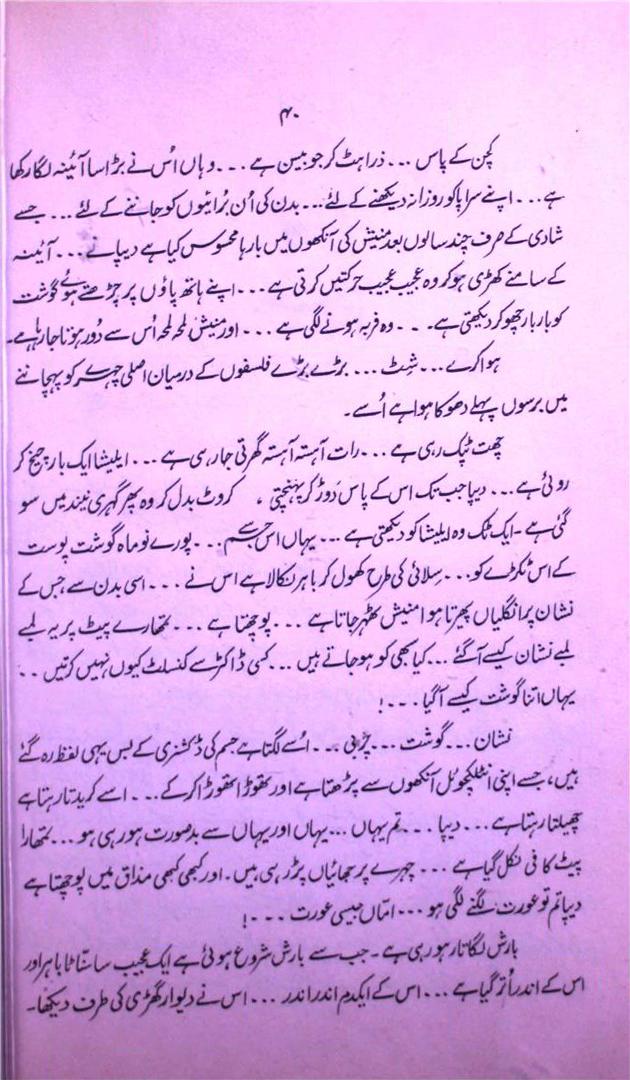 ۴۰
کچن کے پاس ... ذرا ہٹ کر جو بیسن ہے ... وہاں اُس نے بڑا سا آئینہ لگا رکھا
ہے ... اپنے سراپا کو روزانہ دیکھنے کے لئے ... بدن کی اُن برائیوں کو جاننے کے لئے ... جسے
شادی کے صرف چند سالوں بعد منیش کی آنکھوں میں بارہا محسوس کیا ہے دیپا نے ... آئینہ
کے سامنے کھڑی ہو کر وہ عجیب عجیب حرکتیں کرتی ہے ... اپنے ہاتھ پاؤں پر چڑھتے ہوئے گوشت
کو بار بار چھو کر دیکھتی ہے ... وہ فربہ ہونے لگی ہے ... اور منیش لمحہ لمحہ اُس سے دُور ہوتا جا رہا ہے۔
ہوا کرے ... شِٹ .... بڑے بڑے فلسفوں کے درمیان اصلی چہرے کو پہچاننے
میں برسوں پہلے دھوکا ہوا ہے اُسے۔
چھت ٹپک رہی ہے ... رات آہستہ آہستہ گھرتی جا رہی ہے ... ایلیشا ایک بار چیخ کر
روئی ہے ... دیپا جب تک اس کے پاس دَوڑ کر پہنچتی ، کروٹ بدل کر وہ پھر گہری نیند میں سو
گئی ہے۔ ایک ٹک وہ ایلیشا کو دیکھتی ہے ... یہاں اس جسم سے ... پورے نو ماہ گوشت پوست
کے اس ٹکڑے کو ... سِلائی کی طرح کھول کر باہر نکالا ہے اس نے ... اسی بدن سے جس کے
نشان پر انگلیاں پھیرتا ہوا منیش ٹھہر جاتا ہے ... پوچھتا ہے ... تمھارے پیٹ پر یہ لمبے
لمبے نشان کیسے آگئے ... کیا سبھی کو ہو جاتے ہیں ... کسی ڈاکٹر سے کنسلٹ کیوں نہیں کرتیں ..
یہاں اتنا گوشت کیسے آگیا ... !
نشان ... گوشت ... چربی ... اُسے لگتا ہے جسم کی ڈکشنری کے بس یہی لفظ رہ گئے
ہیں، جسے اپنی انٹلکچوئل آنکھوں سے پڑھتا ہے اور تھوڑا تھوڑا کر کے ... اسے کریدتا رہتا ہے
چھیلتا رہتا ہے ... دیپا ... تم یہاں ... یہاں اور یہاں سے بدصورت ہو رہی ہو ... تمھارا
پیٹ کافی نکل گیا ہے ... چہرے پر جھائیاں پڑ رہی ہیں۔ اور کبھی کبھی مذاق میں پوچھتا ہے
دیپا تم تو عورت لگنے لگی ہو ... امّاں جیسی عورت ... !
بارش لگاتار ہو رہی ہے۔ جب سے بارش شروع ہوئی ہے ایک عجیب سا سنّاٹا باہر اور
اس کے اندر اُتر گیا ہے ... اس کے ایکدم اندر اندر ... اس نے دیوار گھڑی کی طرف دیکھا۔